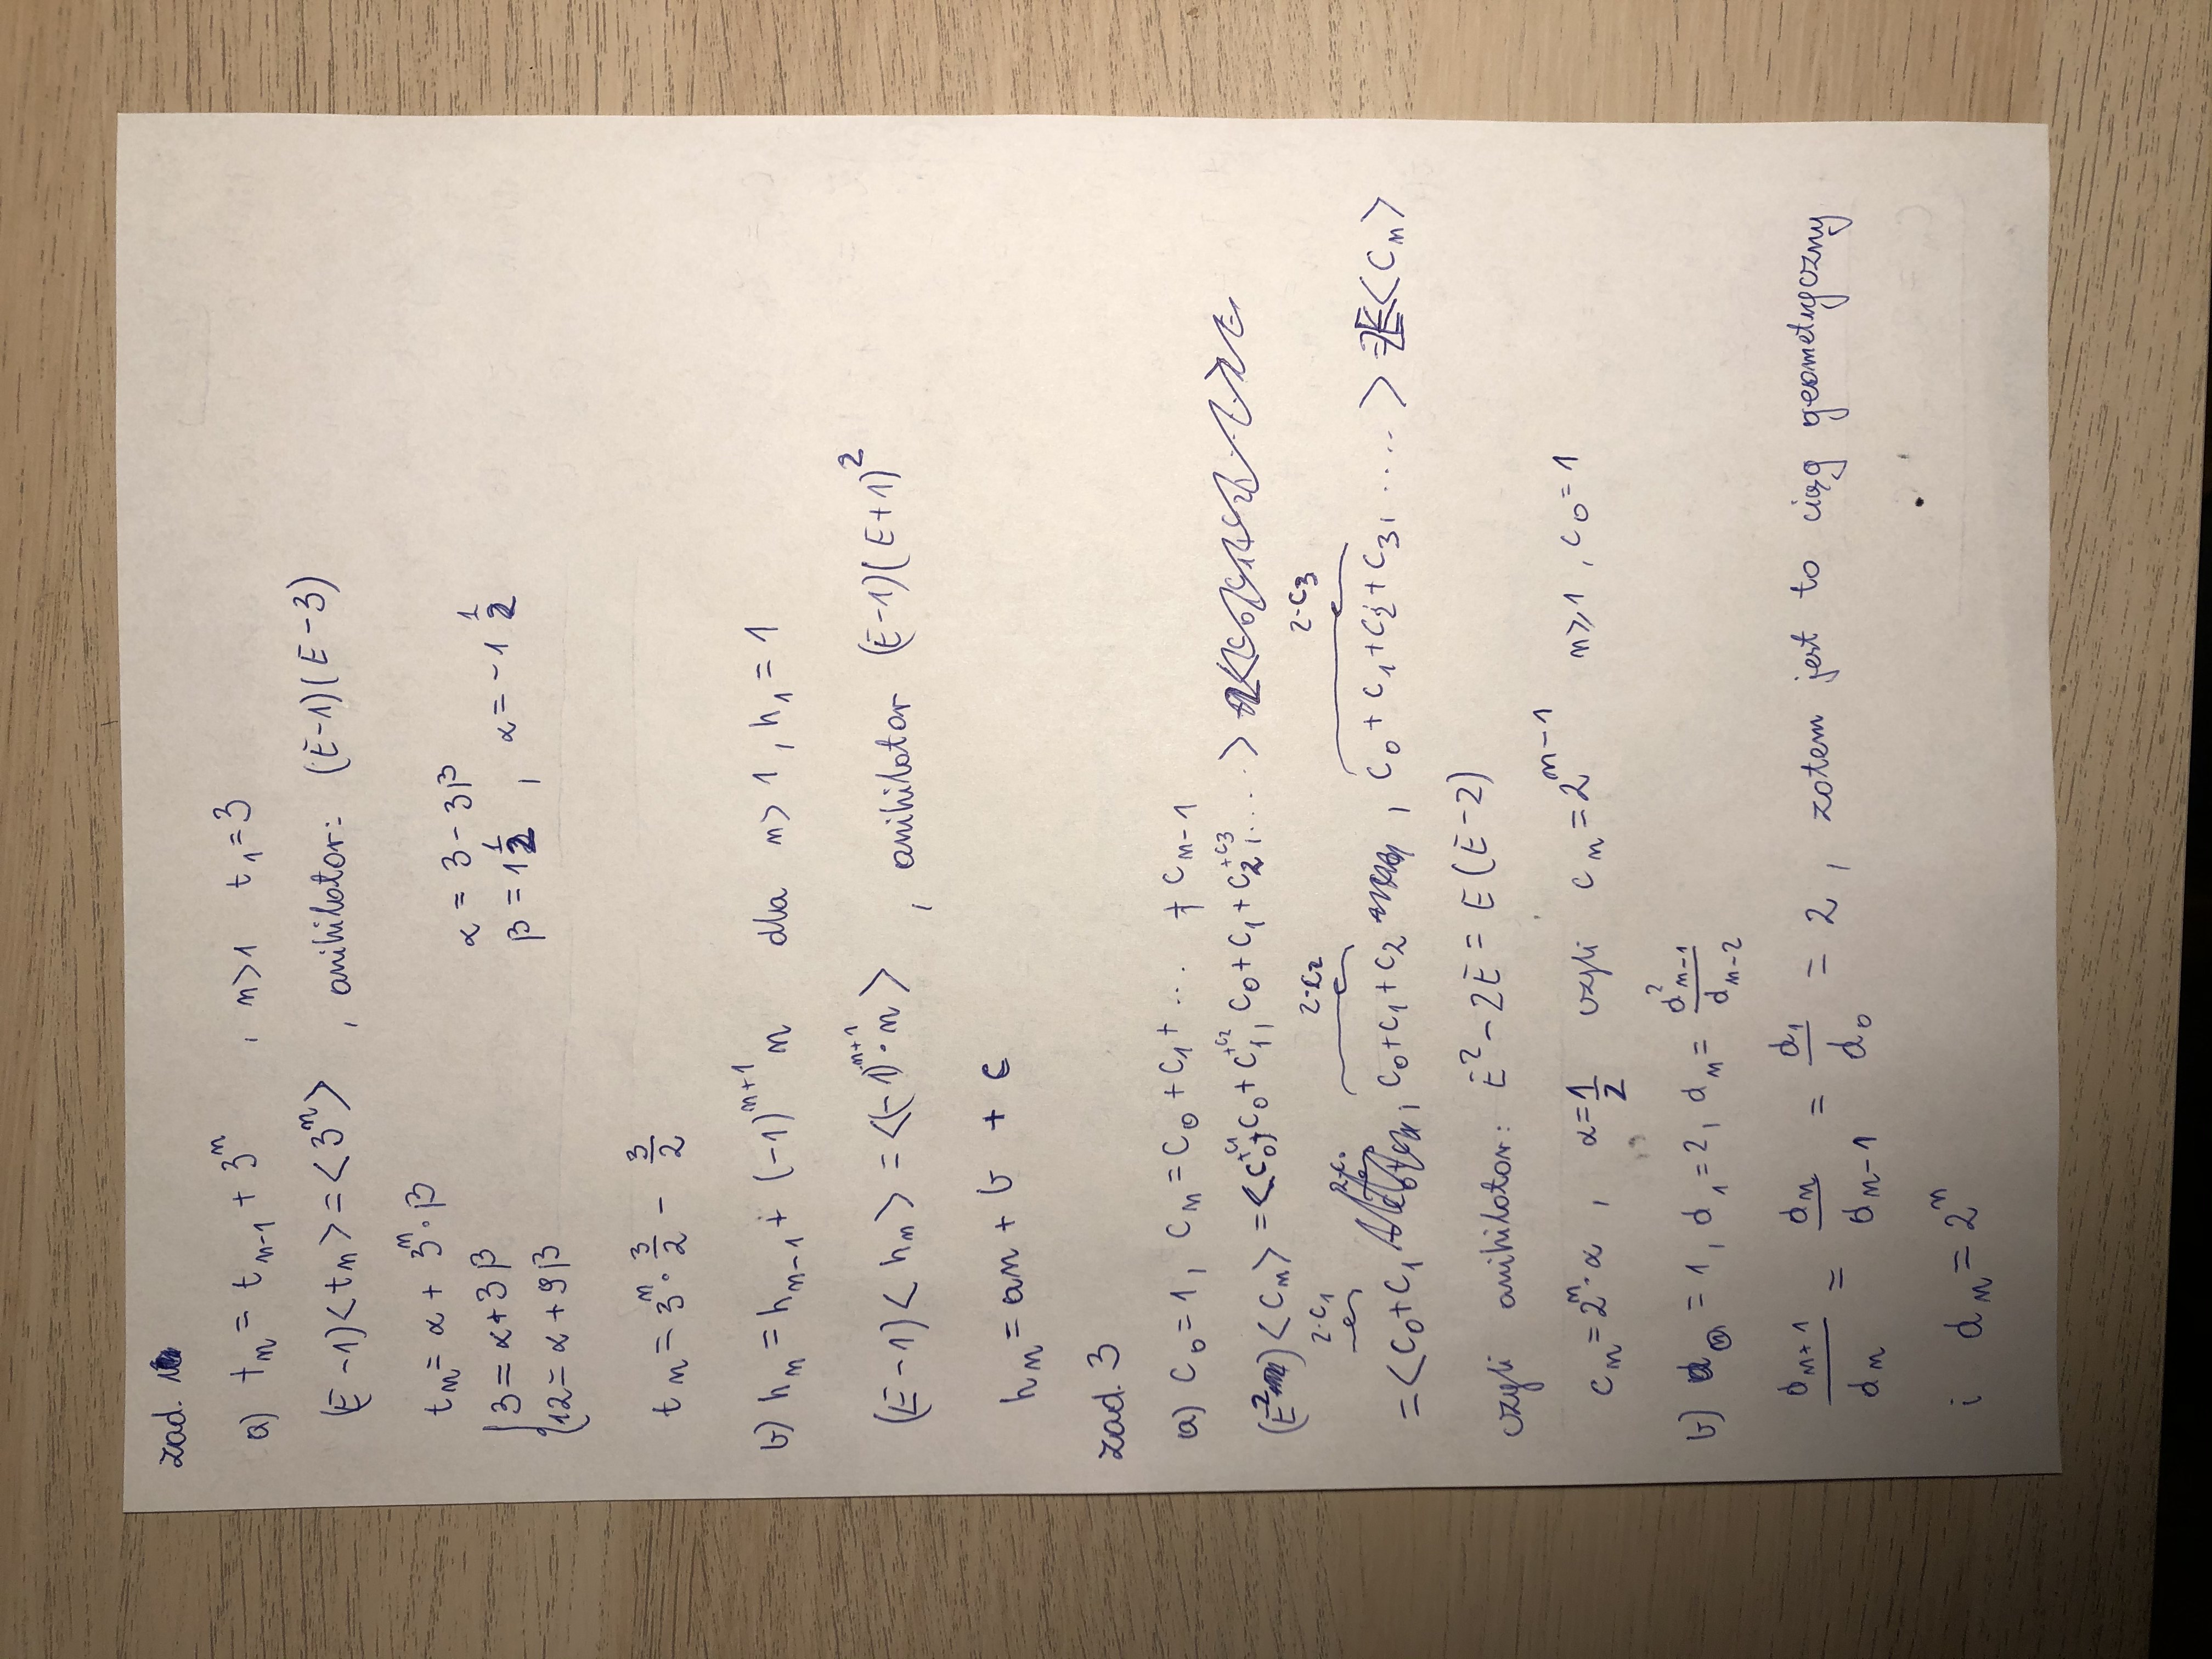 zad. 1
a) t_n = t_{n-1} + 3^n , n>1 t_1 = 3
(E-1)<t_n> = <3^n> , anihilator: (E-1)(E-3)
t_n = α + 3^n · β
{ 3 = α + 3β
{ 12 = α + 9β
α = 3 - 3β
β = 1 1/2 , α = -1 1/2
t_n = 3^n · 3/2 - 3/2
b) h_n = h_{n-1} + (-1)^{n+1} n dla n > 1 , h_1 = 1
(E-1)<h_n> = <(-1)^{n+1} · n> , anihilator (E-1)(E+1)^2
h_n = an + b + c
zad. 3
a) c_0 = 1, c_n = c_0 + c_1 + ... + c_{n-1}
(E^2)<c_n> = <c_0 + c_1, c_0 + c_1 + c_2, c_0 + c_1 + c_2 + c_3, ....>
2·c_1 2·c_2 2·c_3
= <c_0 + c_1, c_0 + c_1 + c_2, c_0 + c_1 + c_2 + c_3, ....> = 2E<c_n>
czyli anihilator: E^2 - 2E = E(E-2)
c_n = 2^n · α , α = 1/2 czyli c_n = 2^{n-1} n ≥ 1 , c_0 = 1
b) d_0 = 1, d_1 = 2, d_n = d^2_{n-1} / d_{n-2}
d_{n+1} / d_n = d_n / d_{n-1} = d_1 / d_0 = 2 , zatem jest to ciąg geometryczny
i d_n = 2^n